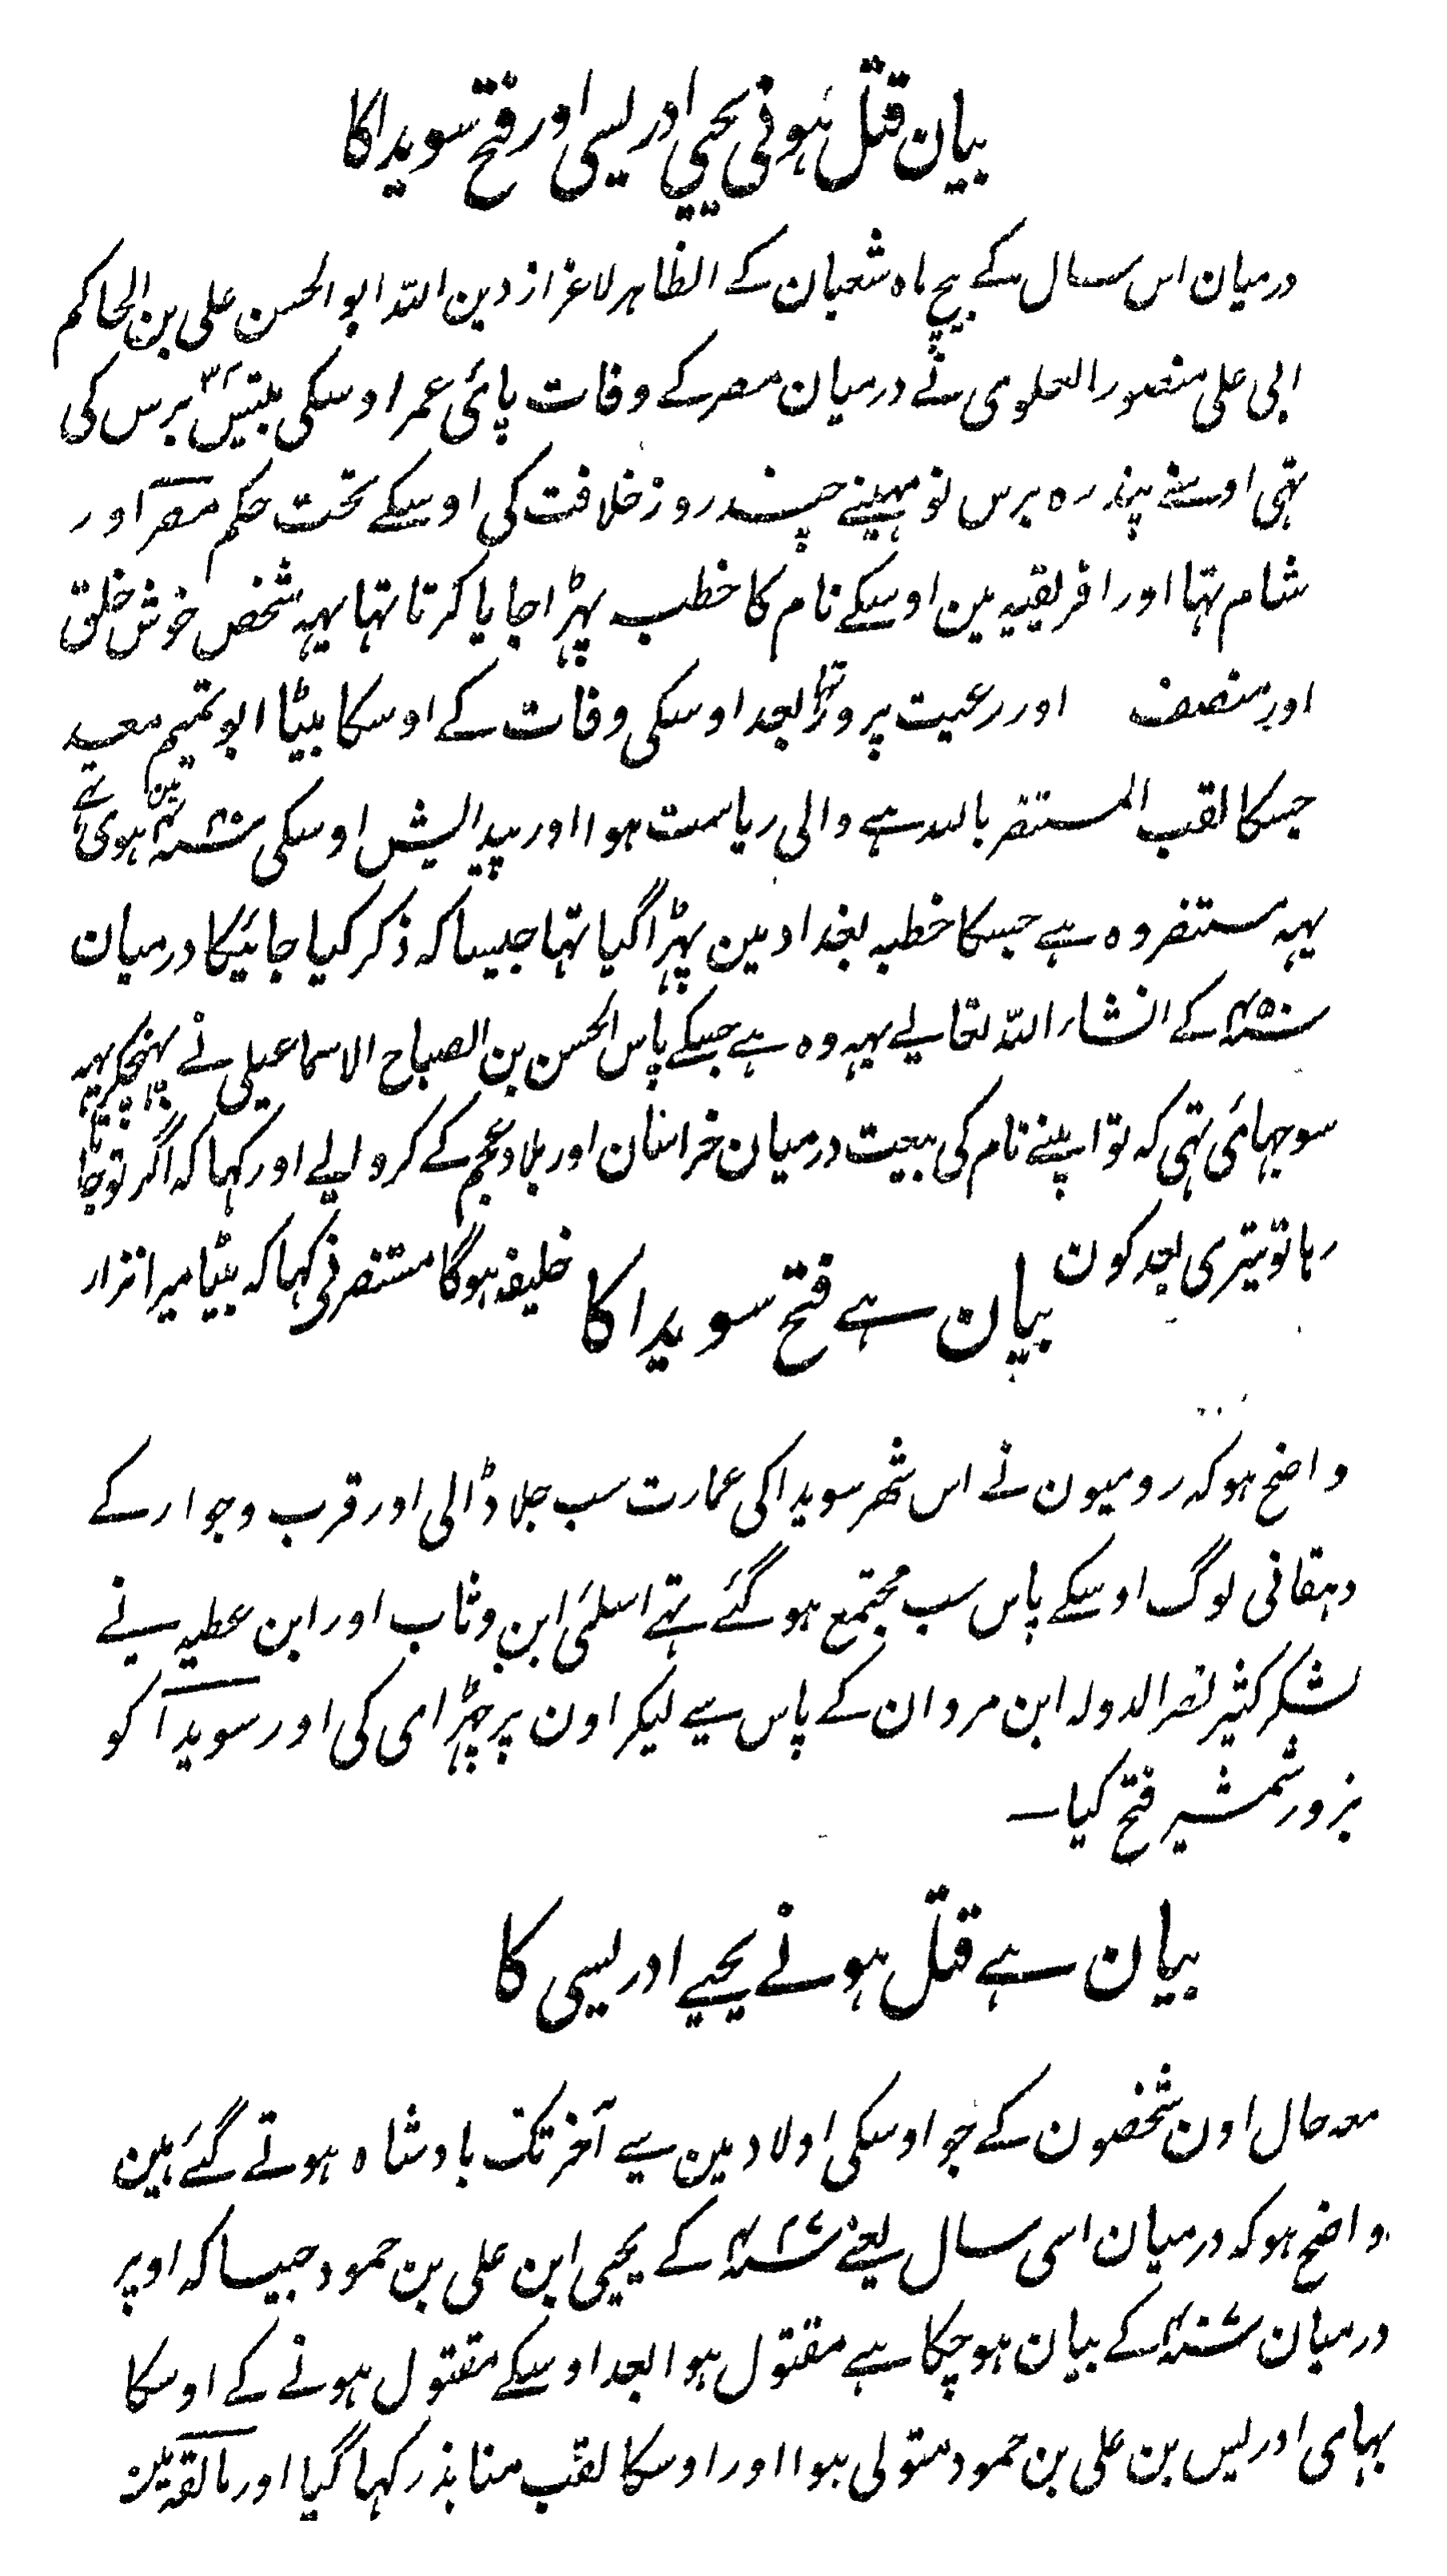 بیان قتل ہونی یحیی ادریسی اور فتح سویداکا
درمیان اس سال کے بیچ ماہ شعبان کے الظاہر لاعزاز دین اللہ ابو الحسن علی بن الحاکم
ابی علی منصور العلوی نے درمیان مصر کے وفات پائی عمر اوسکی بتیس برس کی
تہی اوسنے پندرہ برس نو مہینے چند روز خلافت کی اوسکے تحت حکم مصر اور
شام تہا اور افریقیہ مین اوسکے نام کا خطبہ پہڑا جایا کرتا تہا یہہ شخص خوش خلق
اور منصف اور رعیت پرور تہا بعد اوسکی وفات کے اوسکا بیٹا ابو تمیم معد
جسکا لقب المستنصر باللہ ہے والی ریاست ہوا اور پیدایش اوسکی سنہ ۴۲۰ مین ہوی تہے
یہہ مستنصر وہ ہے جسکا خطبہ بغداد مین پہڑا گیا تہا جیسا کہ ذکر کیا جائیگا درمیان
سنہ ۴۵۰ کے انشاء اللہ تعالے یہہ وہ ہے جسکے پاس الحسن بن الصباح الاسماعیلی نے پہنچکر یہہ
سوجہائی تہی کہ تو اپنے نام کی بیعت درمیان خراسان اور بلاد عجم کے کرو الے اور کہا کہ اگر تو جاتا
رہا تو تیری بعد کون خلیفہ ہوگا مستنصر نی کہا کہ بیٹا میرا نزار
بیان ہے فتح سویدا کا
واضح ہو کہ رومیون نے اس شہر سویدا کی عمارت سب جلا ڈالی اور قرب و جوار کے
دہقانی لوگ اوسکے پاس سب مجتمع ہو گئے تہے اسلئی ابن وثاب اور ابن عطیہ نے
لشکر کثیر نصر الدولہ ابن مروان کے پاس سے لیکر اون پر چہڑای کی اور سویدا کو
بزور شمشیر فتح کیا ـ
بیان ہے قتل ہونے یحیے ادریسی کا
معہ حال اون شخصون کے جو اوسکی اولاد مین سے آخر تک بادشاہ ہوتے گئے ہین
واضح ہو کہ درمیان اسی سال یعنے سنہ ۴۲۷ کے یحیی ابن علی بن حمود جیسا کہ اوپر
درمیان سنہ ۴۰۷ کے بیان ہو چکا ہے مقتول ہوا بعد اوسکے مقتول ہونے کے اوسکا
بہای ادریس بن علی بن حمود متولی ہوا اور اوسکا لقب متابذر کہا گیا اور مالقہ مین